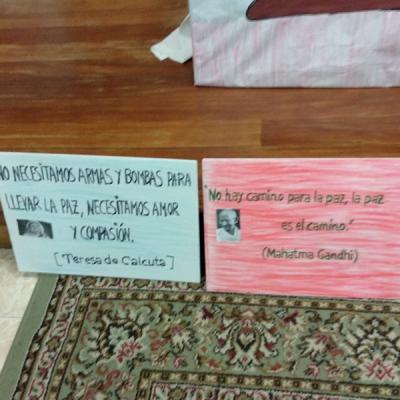 NO NECESITAMOS ARMAS Y BOMBAS PARA
LLEVAR LA PAZ, NECESITAMOS AMOR
Y COMPASIÓN.
[Teresa de Calcuta]
"No hay camino para la paz, la paz
es el camino."
(Mahatma Gandhi)